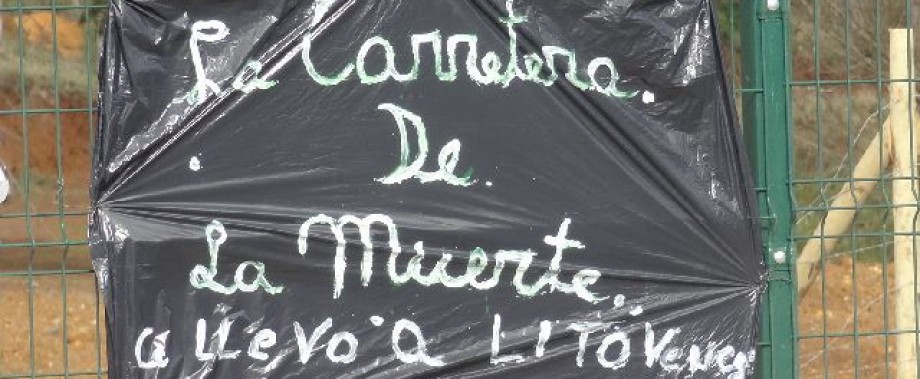 La Carretera.
De.
La Muerte.
a LLevo a LITO